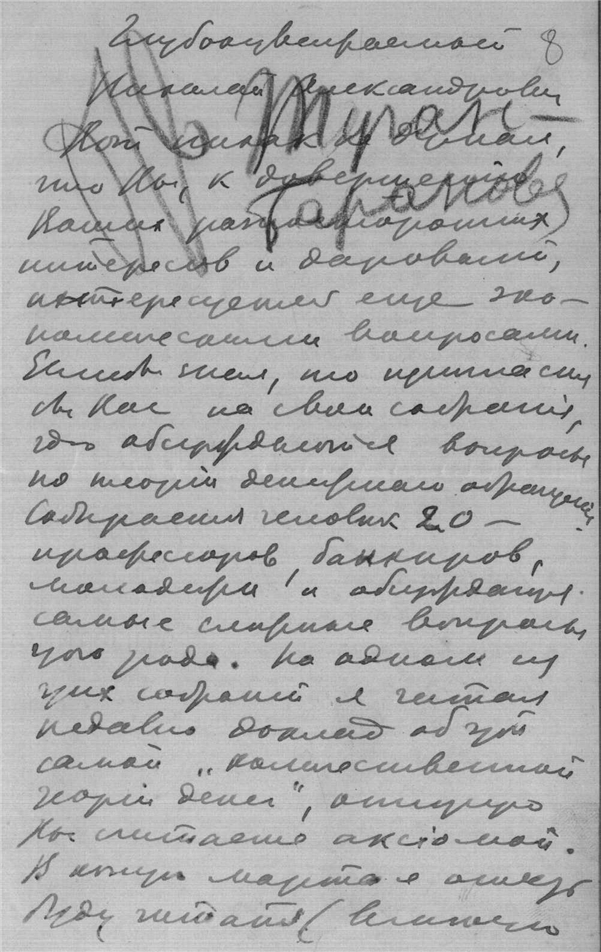 Глубокоуважаемый 8
Николай Александрович
Туган-
Вот никак не думал,
что Вы, к довершению
Барановс
Ваших разносторонних
интересов и дарований,
интересуетесь еще эко-
номическими вопросами.
Если бы знал, то пригласил
бы Вас на свои собрания,
где обсуждаются вопросы
по теоріи денежнаго обращенія.
Собирается человек 20 –
професоров, банкиров,
молодежи и обсуждаются
самые спорные вопросы
этого рода. На одном из
этих собраний я читал
недавно доклад об этой
самой „количественной
теоріи денег", которую
Вы считаете аксіомой.
В конце марта я опять
буду читать (